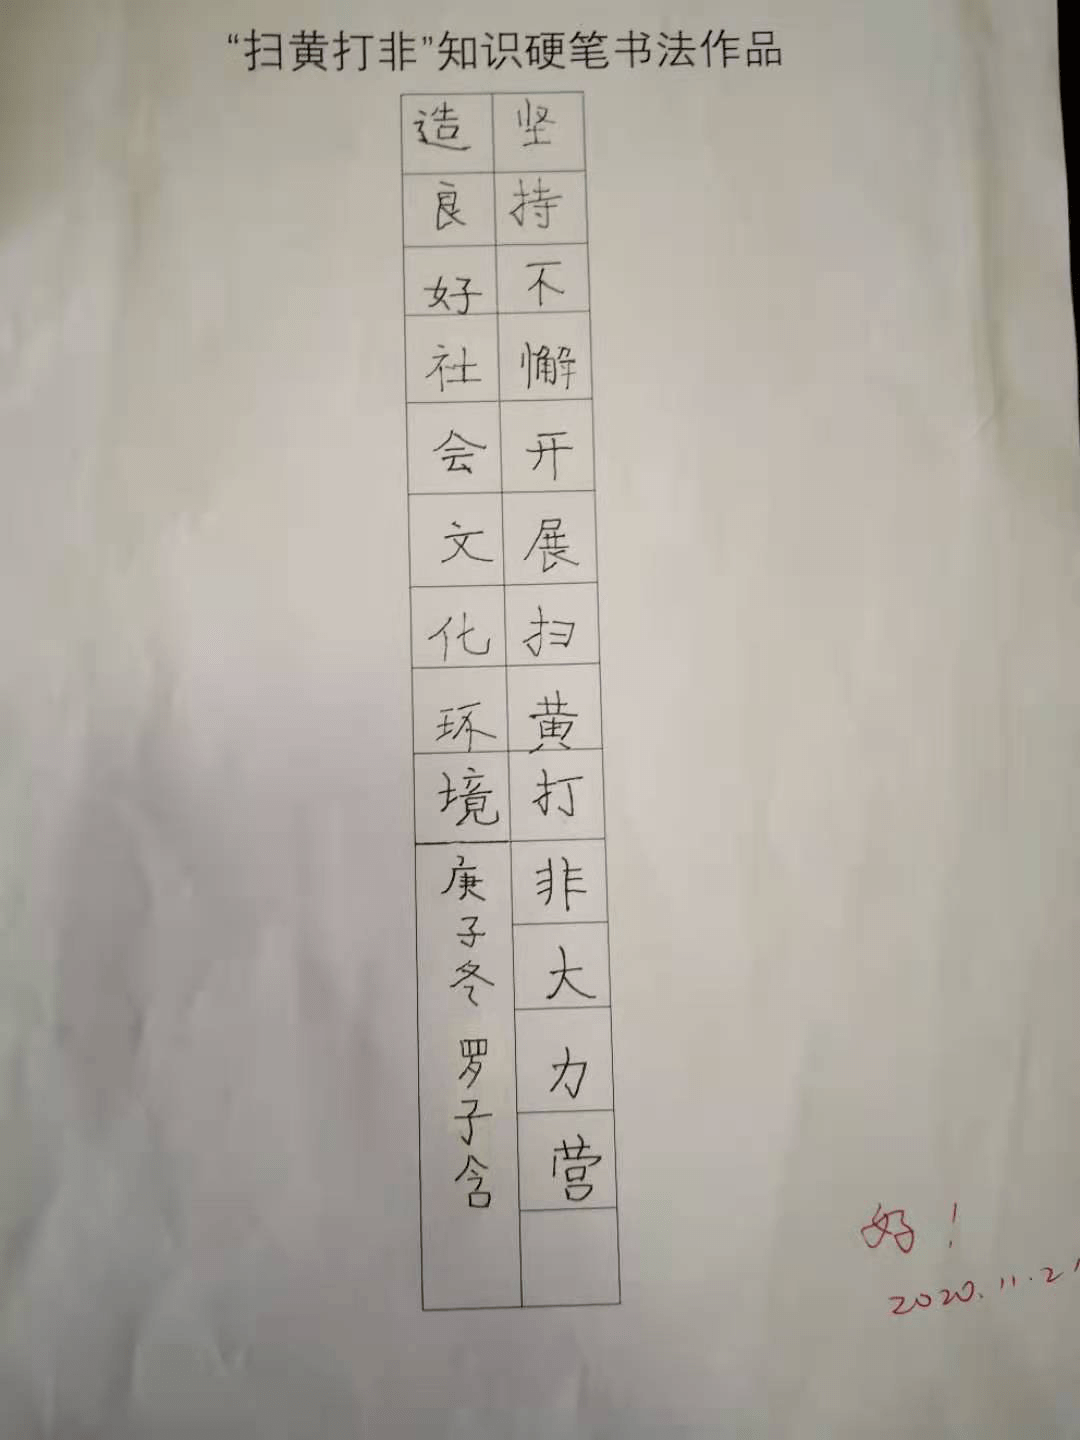 “扫黄打非”知识硬笔书法作品
坚持不懈开展扫黄打非大力营
造良好社会文化环境
庚子冬 罗子含
好!
2020.11.21